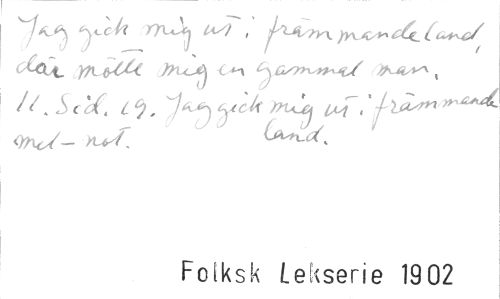 Jag gick mig ut i främmande land,
där mötte mig en gammal man.
11. Sid. 19. Jag gick mig ut i främmande
mel-not. land.
Folksk Lekserie 1902